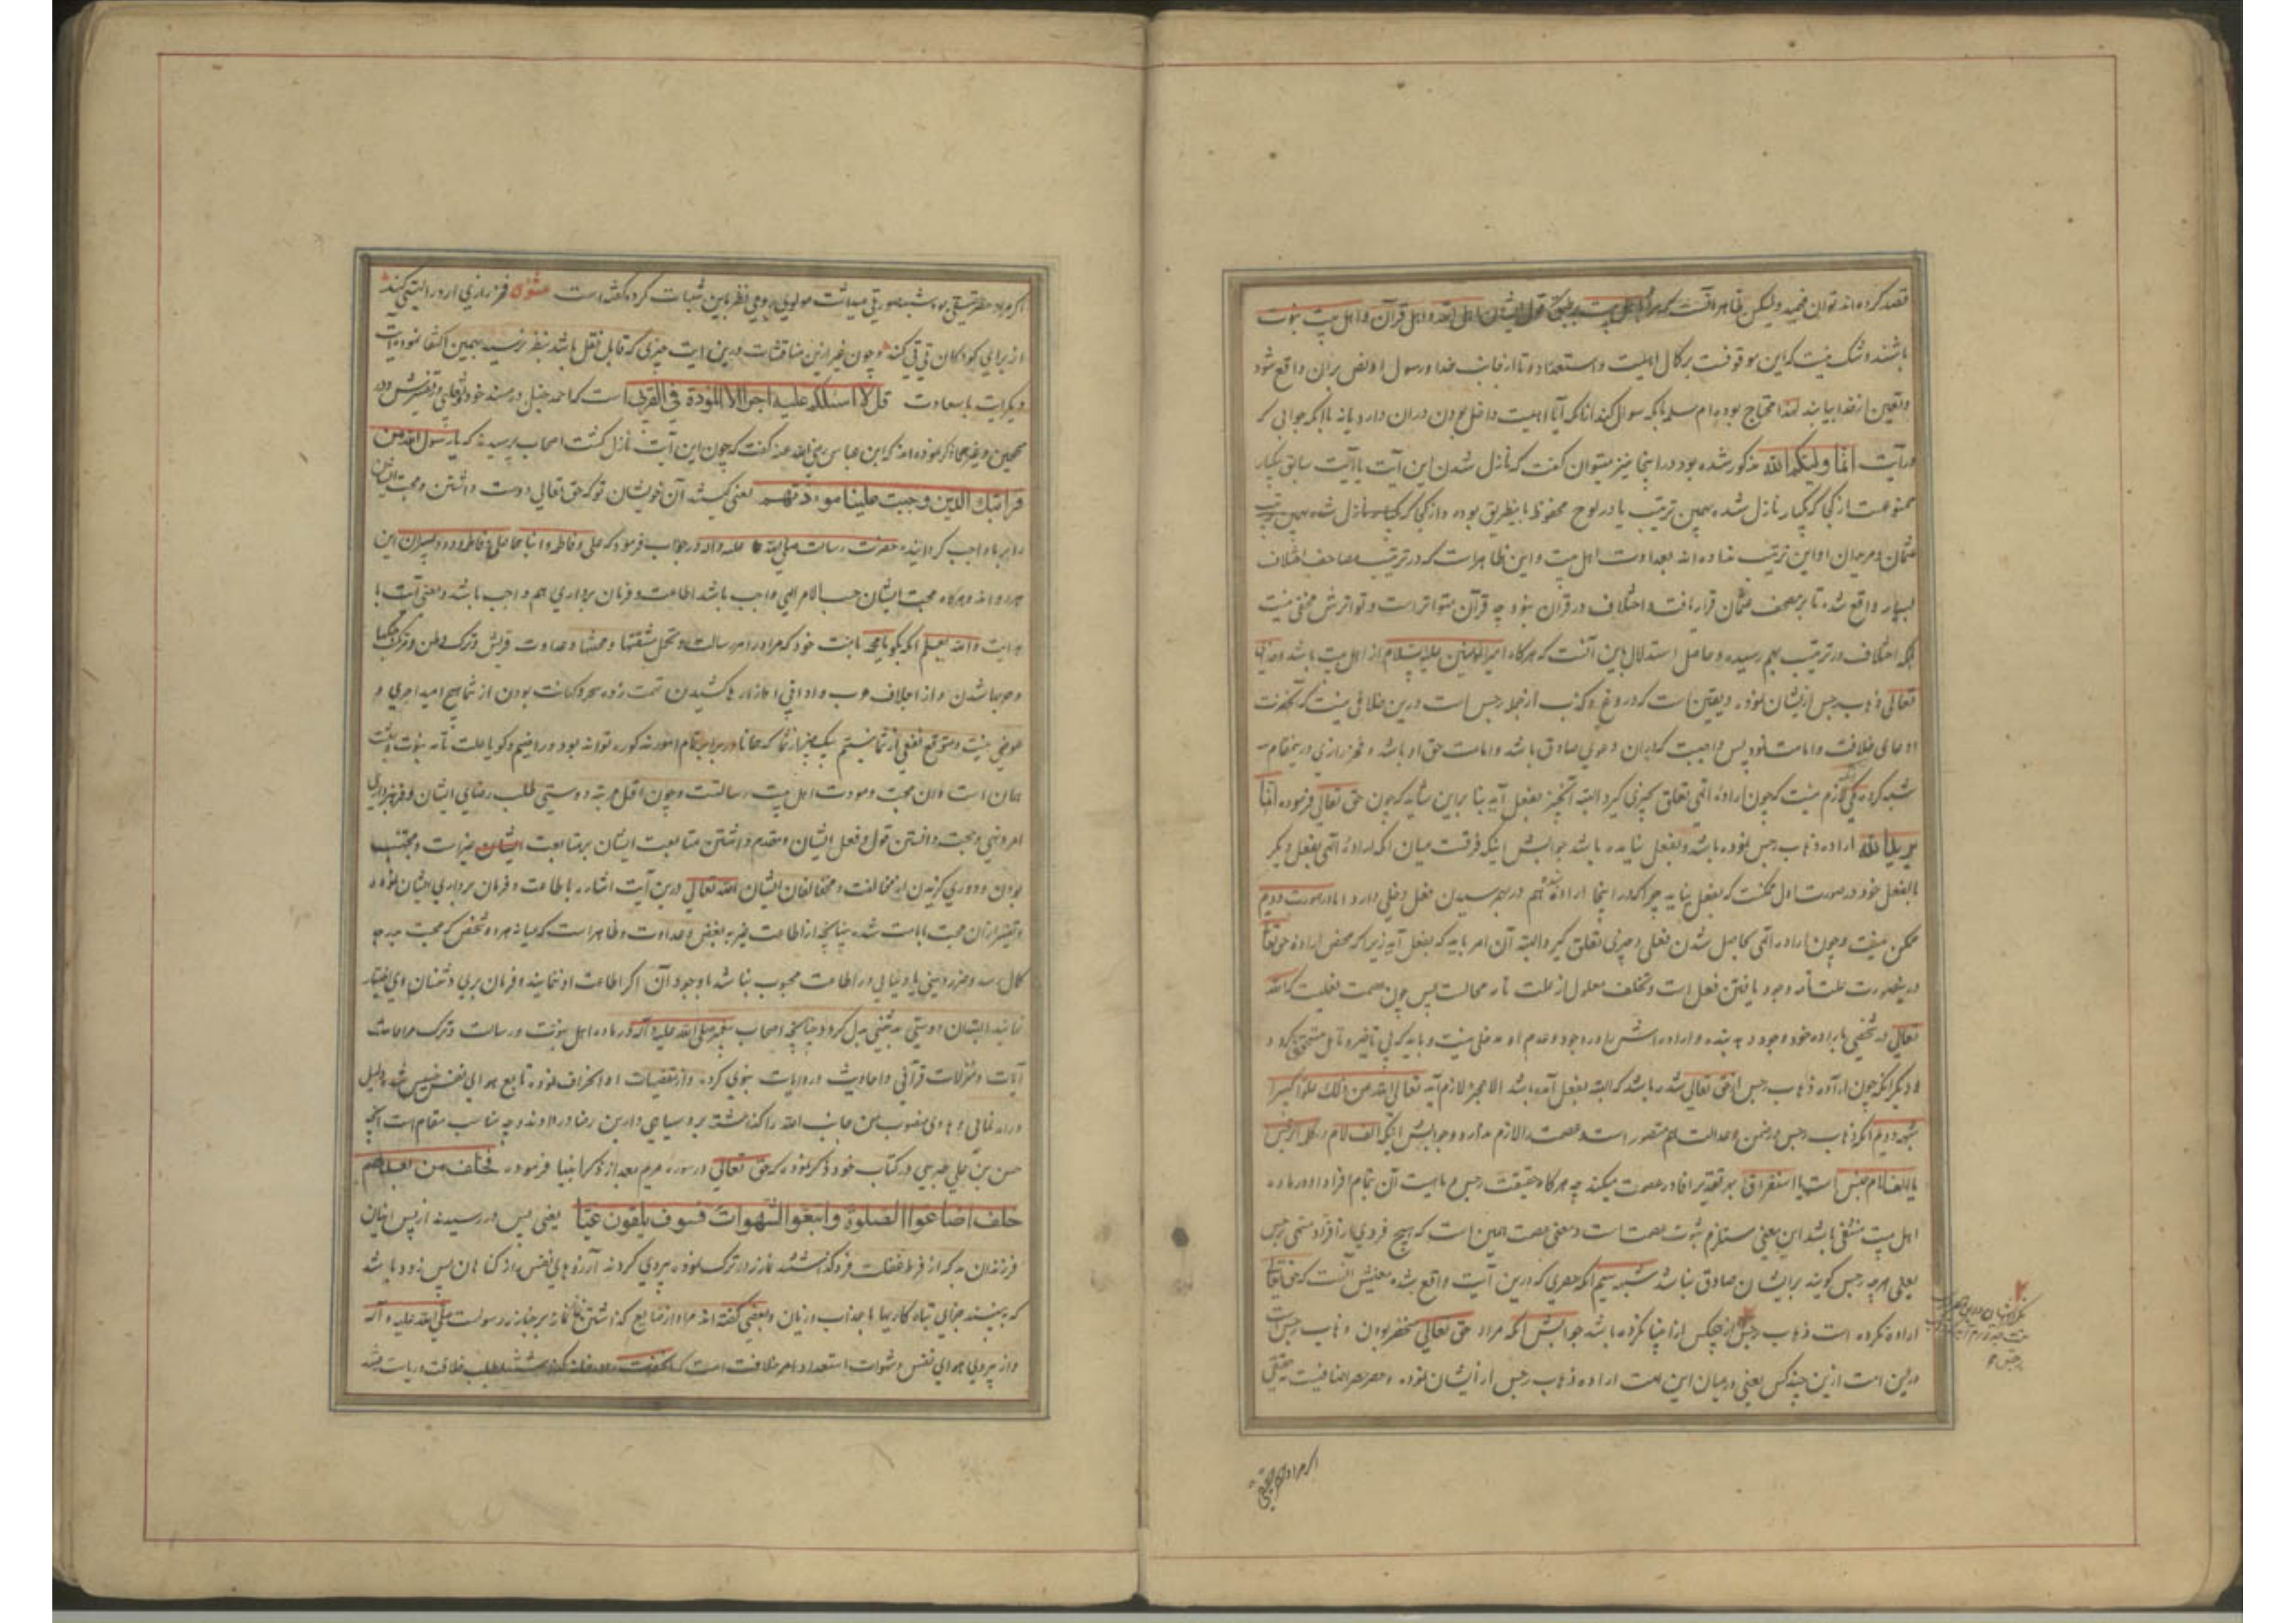 قصد کرده‌اند توان فهمید ولیکن ظاهر آنست که مراد اهل بیت اهل الله و اهل قرآن و اهل بیت نبوت
باشند و شک نیست که این موقوفست بر کمال اهلیت و استعداد تا از جانب خدا و رسول او نص بران واقع شود
و تعیین از خدا بیابند لهذا محتاج بوده ام سلمه بآنکه سوال کند از آنکه آیا اهلیت داخل بودن دران دارد یا نه با آنکه جوابی که
در آیت انما ولیکم الله مذکور شده بود در اینجا نیز میتوان گفت که نازل شدن این آیت با آیت سابق یکبار
ممنوعست از کجا که یکبار نازل شده بهمین ترتیب یا در لوح محفوظ باینطریق بوده و از کجا که
عثمان و مریدان او این ترتیب نداده‌اند بعداوت اهل بیت و این ظاهر است که در ترتیب مصاحف اختلاف
بسیار واقع شده تا بر مصحف عثمان قرار یافت و اختلاف در قرآن نبود چه قرآن متواتر است و تواترش مخفی نیست
بلکه اختلاف در ترتیب بهم رسیده و حاصل استدلال باین آنست که هرگاه امیرالمؤمنین علیه السلام از اهل بیت باشد و خدای
تعالی ذهاب رجس از ایشان نموده و یقین است که دروغ و کذب از جمله رجس است و درین خلافی نیست که آنحضرت
ادعای خلافت و امامت نمود پس واجبست که در آن دعوی صادق باشد و امامت حق او باشد و فخر رازی درینمقام
شبه کرده یکی آنکه لازم نیست که چون اراده الهی تعلق بچیزی گیرد البته آنچیز بفعل آید بنا برین شاید که چون حق تعالی فرموده انما
یرید الله اراده ذهاب رجس نموده باشد و بفعل نیامده باشد جوابش اینکه فرقست میان آنکه اراده الهی بفعل دیگر
یا بفعل خود در صورت اول ممکنست که بفعل نیاید چرا که در اینجا اراده بنده هم در بهم رسیدن فعل دخلی دارد اما در صورت دویم
ممکن نیست و چون اراده الهی بحاصل شدن فعلی و چیزی تعلق گیرد البته آن امر باید که بفعل آید زیرا که محض اراده حق تعالی
درینصورت علت تامه وجود یافتن فعل است و تخلف معلول از علت تامه محالست پس چون عصمت فعلیست که الله
تعالی در شخصی باراده خود وجود دهد بنده و اراده‌اش را در وجود و عدم او مدخلی نیست و باید که بی تاخیر و تامل متحقق گردد
و دیگر آنکه چون اراده ذهاب رجس از حق تعالی شده باشد که البته بفعل آمده باشد الا عجز لازم آید تعالی الله عن ذلک علوا کبیرا
شبه دویم آنکه ذهاب رجس در ضمن عدالت هم متصور است و عصمت را لازم ندارد و جوابش اینکه الف لام در کلمه الرجس
یا الف لام جنس است یا استغراق بهر تقدیر افاده عصمت میکند چه هرگاه حقیقت رجس و ماهیت آن بتمام افراد او درماده
اهل بیت منتفی باشد این معنی مستلزم ثبوت عصمت است و معنی عصمت همین است که هیچ فردی از افراد مسمی رجس
یعنی هر چه رجس گویند بر ایشان صادق نباشد شبه سیم آنکه حصری که درین آیت واقع شده معنیش آنست که حق تعالی
اراده نکرده است ذهاب رجس از هیچکس از انبیا نکرده باشد جوابش آنکه مراد حق تعالی منحصر بودن ذهاب رجس است
درین امت ازین چند کس یعنی در میان این امت اراده ذهاب رجس از ایشان نموده و حصر حصر اضافیست نه حقیقی
اگر مراد حصر حقیقی
اگر مراد حصر حقیقی بود شبه صورتی میداشت مولوی رومی نظر باین شبهات کرده گفته است مثنوی فخر رازی ار در التی کند
از برای کودکان تی تی کند و چون غیر ازین مناقشات درین آیت چیزی که قابل نقل باشد بنظر نرسید بهمین اکتفا نمود آیت
دیگر آیت با سعادت قل لا اسئلکم علیه اجرا الا المودة فی القربی است که احمد حنبل در مسند خود و ثعلبی در تفسیرش و در
صحیحین و غیرهما ذکر نموده‌اند که ابن عباس رضی الله عنه گفت که چون این آیت نازل گشت اصحاب پرسیدند که یا رسول الله من
قرابتک الذین وجبت علینا مودتهم یعنی کیستند آن خویشان تو که حق تعالی دوست داشتن و محبت ایشان
را بر ما واجب گردانیده حضرت رسالت صلی الله علیه واله در جواب فرمود که علی و فاطمه و ابناهما علی و فاطمه و دو پسران این
هر دو اند و هرگاه محبت ایشان حسب الامر الهی واجب باشد اطاعت و فرمان برداری هم واجب باشد و معنی آیت با
هدایت والله یعلم آنکه بگو یا محمد بامت خود که مرا در امر رسالت و تحمل مشقتها و محنتها و عداوت قریش و ترک وطن و ترک جنگها
و حربها شدن و از اجلاف عرب و ادانی آزارها کشیدن تهمت زده سحر و کهانت بودن از شما هیچ امید اجری و
عوضی نیست و متوقع نفعی از شما نیستم بیک چیز از شما که همانا در برابر تمام امور مذکوره تواند بود و راضیم و گویا علت تامه نبوت و بعثت
همان است و آن محبت و مودت اهل بیت رسالتست و چون اقل مرتبه دوستی طلب رضای ایشان و فرمانبرداری
امر و نهی و حجت دانستن قول و فعل ایشان و مقدم داشتن متابعت ایشان بر متابعت غیر است و مجتنب
بودن و دوری گزیدن از مخالفت و مخالفان ایشان الله تعالی درین آیت اشاره باطاعت و فرمان برداری ایشان نموده
و تفسیر از آن محبت شده چنانچه از اطاعت غیر به بغض و عداوت و ظاهر است که میانه هر دو شخص که محبت بدرجه
کمال رسد و ضرر دینی یا دنیایی در اطاعت محبوب نباشد با وجود آن اگر اطاعت او ننمایند و فرمان بری دشمنان وی اختیار
نمایند البته آن دوستی بدشمنی بدل گردد چنانچه اصحاب پیغمبر صلی الله علیه و آله در ماده اهل بیت رسالت و ترک مراعات
آیات و منزلات قرآنی و احادیث و روایات نبوی کرده و از مقتضیات او انحراف نموده تابع هوای نفس خسیس شده دلیل
و راه نمائی و هادی منصوب من جانب الله را گذاشته برو سیاهی دارین رضا در دادند و چه مناسب مقام است آنچه
حسن بن علی طبرسی در کتاب خود ذکر نموده که حق تعالی در سوره مریم بعد از ذکر انبیا فرموده فخلف من بعدهم
خلف اضاعوا الصلوة واتبعوا الشهوات فسوف یلقون غیا یعنی پس در رسیدند از پس ایشان
فرزندان بد که از فرط غفلت فرو گذاشتند نماز را و ترک نموده پیروی کردند آرزوهای نفس را از گناهان پس زود باشد
که به بینند جزای تباه کاریها با عذاب و زیان و بعضی گفته‌اند مراد از ضایع گذاشتن نماز نماز بر جنازه رسولست صلی الله علیه و آله
و از پیروی هوای نفس و شهوات استعداد امر خلافت است که طلب خلافت و ریاست